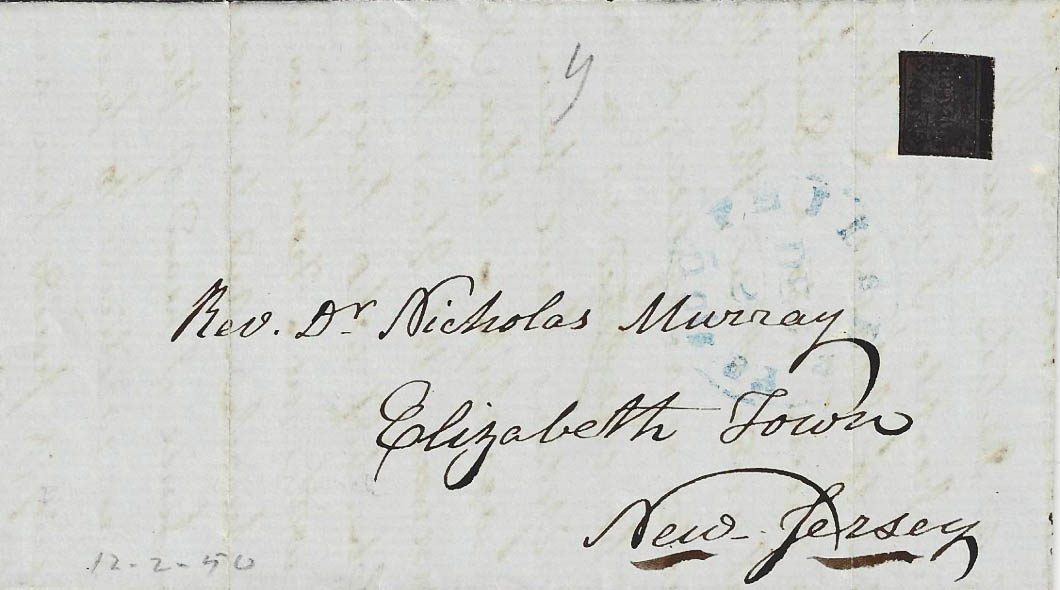 Rev. Dr Nicholas Murray
Elizabeth Town
New-Jersey
12-2-50